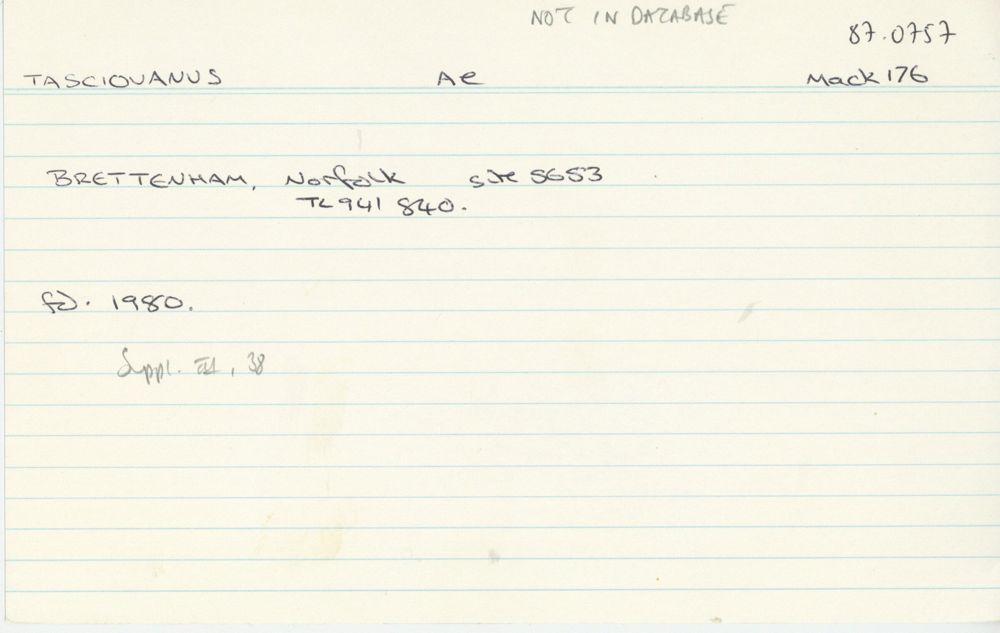 NOT IN DATABASE
87.0757
TASCIOVANUS Ae Mack 176
BRETTENHAM, Norfolk site 5653
TL 941 840.
fd. 1980.
Suppl. III, 38